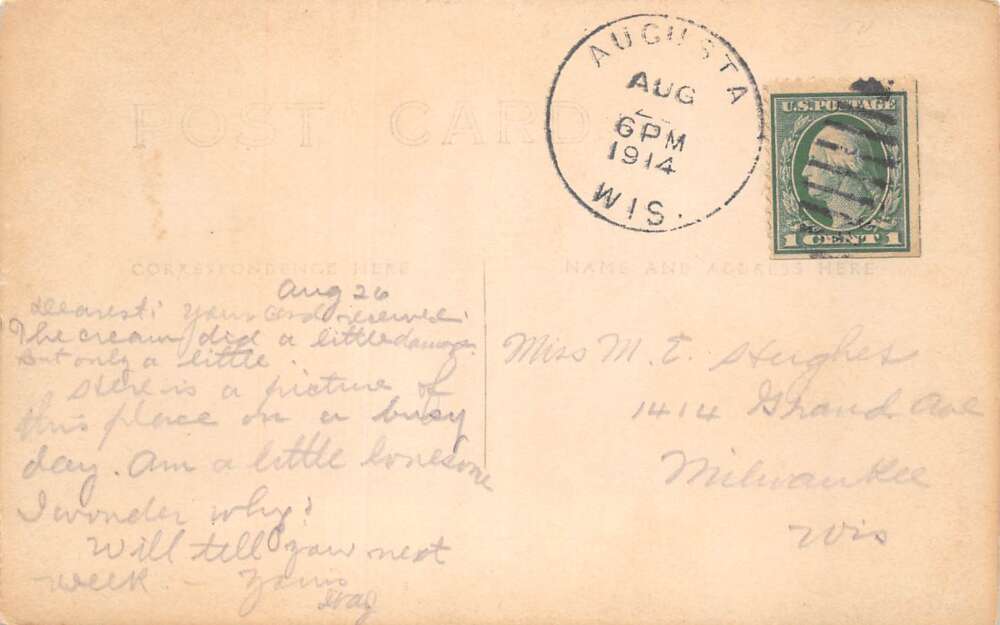 AUGUSTA
AUG
6PM
1914
WIS.
U.S. POSTAGE
1 CENT 1
POST CARD
CORRESPONDENCE HERE
NAME AND ADDRESS HERE
Aug 26
Dearest: Your card received.
The cream did a little damage
But only a little.
Here is a picture of
this place on a busy
day. Am a little lonesome
I wonder why?
Will tell you next
week. - Yours
Miss M. E. Hughes
1414 Grand Ave
Milwaukee
Wis